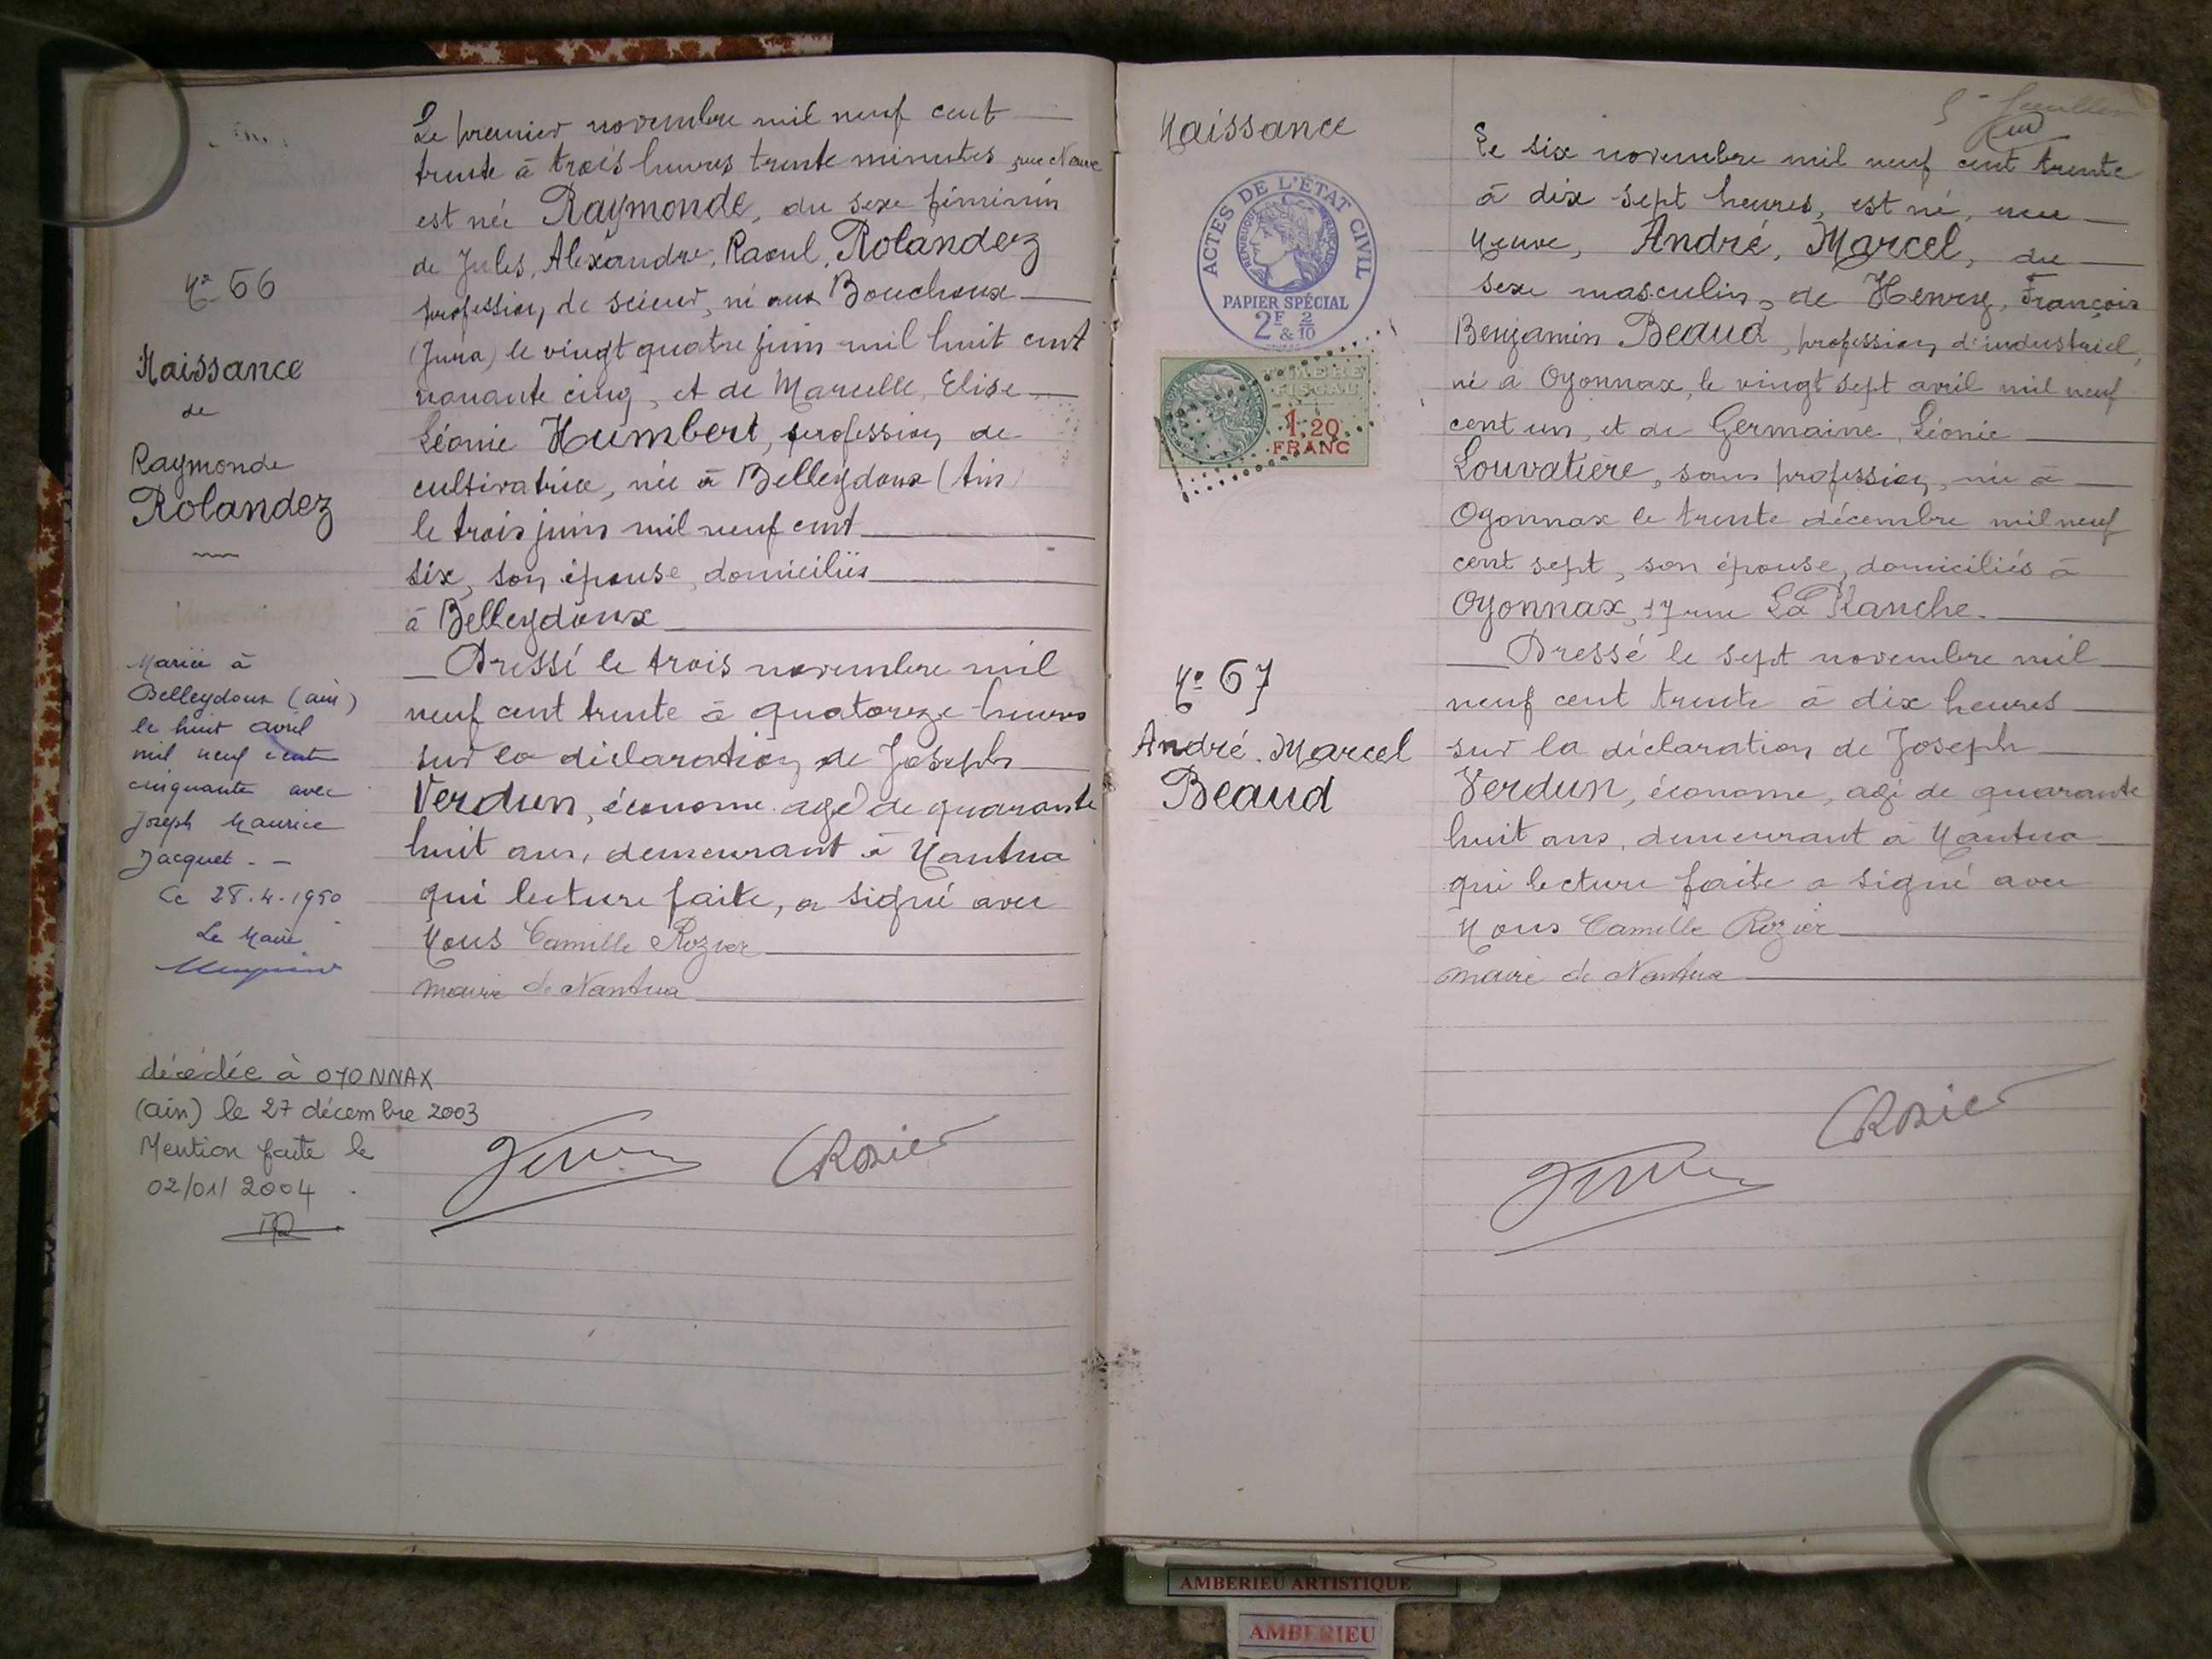 Nº 66
Naissance
de
Raymonde
Rolandez
Mariée à
Belleydoux (ain)
le huit avril
mil neuf cent
cinquante avec
Joseph Maurice
Jacquet - -
Le 28.4.1950
Le Maire
décédée à OYONNAX
(ain) le 27 décembre 2003
Mention faite le
02/01/2004
Le premier novembre mil neuf cent
trente à trois heures trente minutes, rue Neuve
est née Raymonde, du sexe féminin
de Jules, Alexandre, Raoul, Rolandez
profession de scieur, né aux Bouchoux
(Jura) le vingt quatre juin mil huit cent
nonante cinq, et de Marcelle, Elise
Léonie Humbert, profession de
cultivatrice, née à Belleydoux (Ain)
le trois juin mil neuf cent
six, son épouse, domiciliés
à Belleydoux
Dressé le trois novembre mil
neuf cent trente à quatorze heures
sur la déclaration de Joseph
Verdun, économe agé de quarante
huit ans, demeurant à Nantua
qui lecture faite, a signé avec
Nous Camille Rozier
maire de Nantua
CRozier
Naissance
ACTES DE L'ÉTAT CIVIL
RÉPUBLIQUE FRANÇAISE
PAPIER SPÉCIAL
2F & 2/10
TIMBRE
FISCAL
1.20
FRANC
Nº 67
André. Marcel
Beaud
Le six novembre mil neuf cent trente
à dix sept heures, est né, rue
Neuve, André, Marcel, du
sexe masculin, de Henry, François
Benjamin Beaud, profession d'industriel,
né à Oyonnax, le vingt sept avril mil neuf
cent un, et de Germaine, Léonie
Louvatière, sans profession, née à
Oyonnax le trente décembre mil neuf
cent sept, son épouse, domiciliés à
Oyonnax, 17 rue La Planche.
Dressé le sept novembre mil
neuf cent trente à dix heures
sur la déclaration de Joseph
Verdun, économe, agé de quarante
huit ans, demeurant à Nantua
qui lecture faite a signé avec
Nous Camille Rozier
maire de Nantua
CRozier
AMBERIEU ARTISTIQUE
AMBERIEU